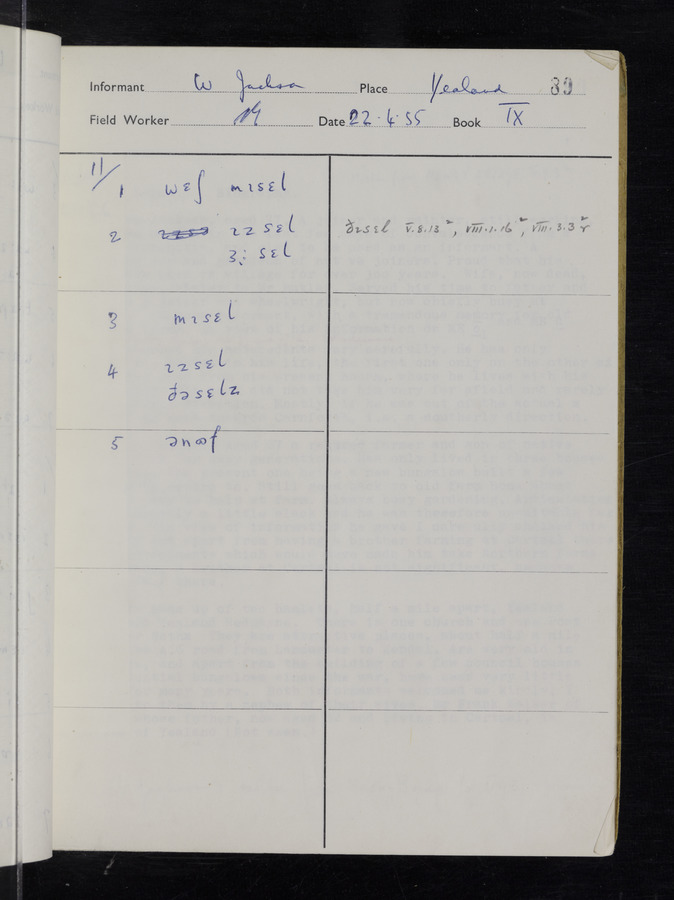 Informant W Jackson Place Yealand 39
Field Worker Date 22.4.55 Book IX
11/1 wɛʃ mɪsɛl
2 ɪzsɛl ðɪsɛl V.8.13², VIII.1.16², VIII.3.3²
ɜ: sɛl
3 mɪsɛl
4 ɪzsɛl
ðəsɛlz
5 ənʊəf